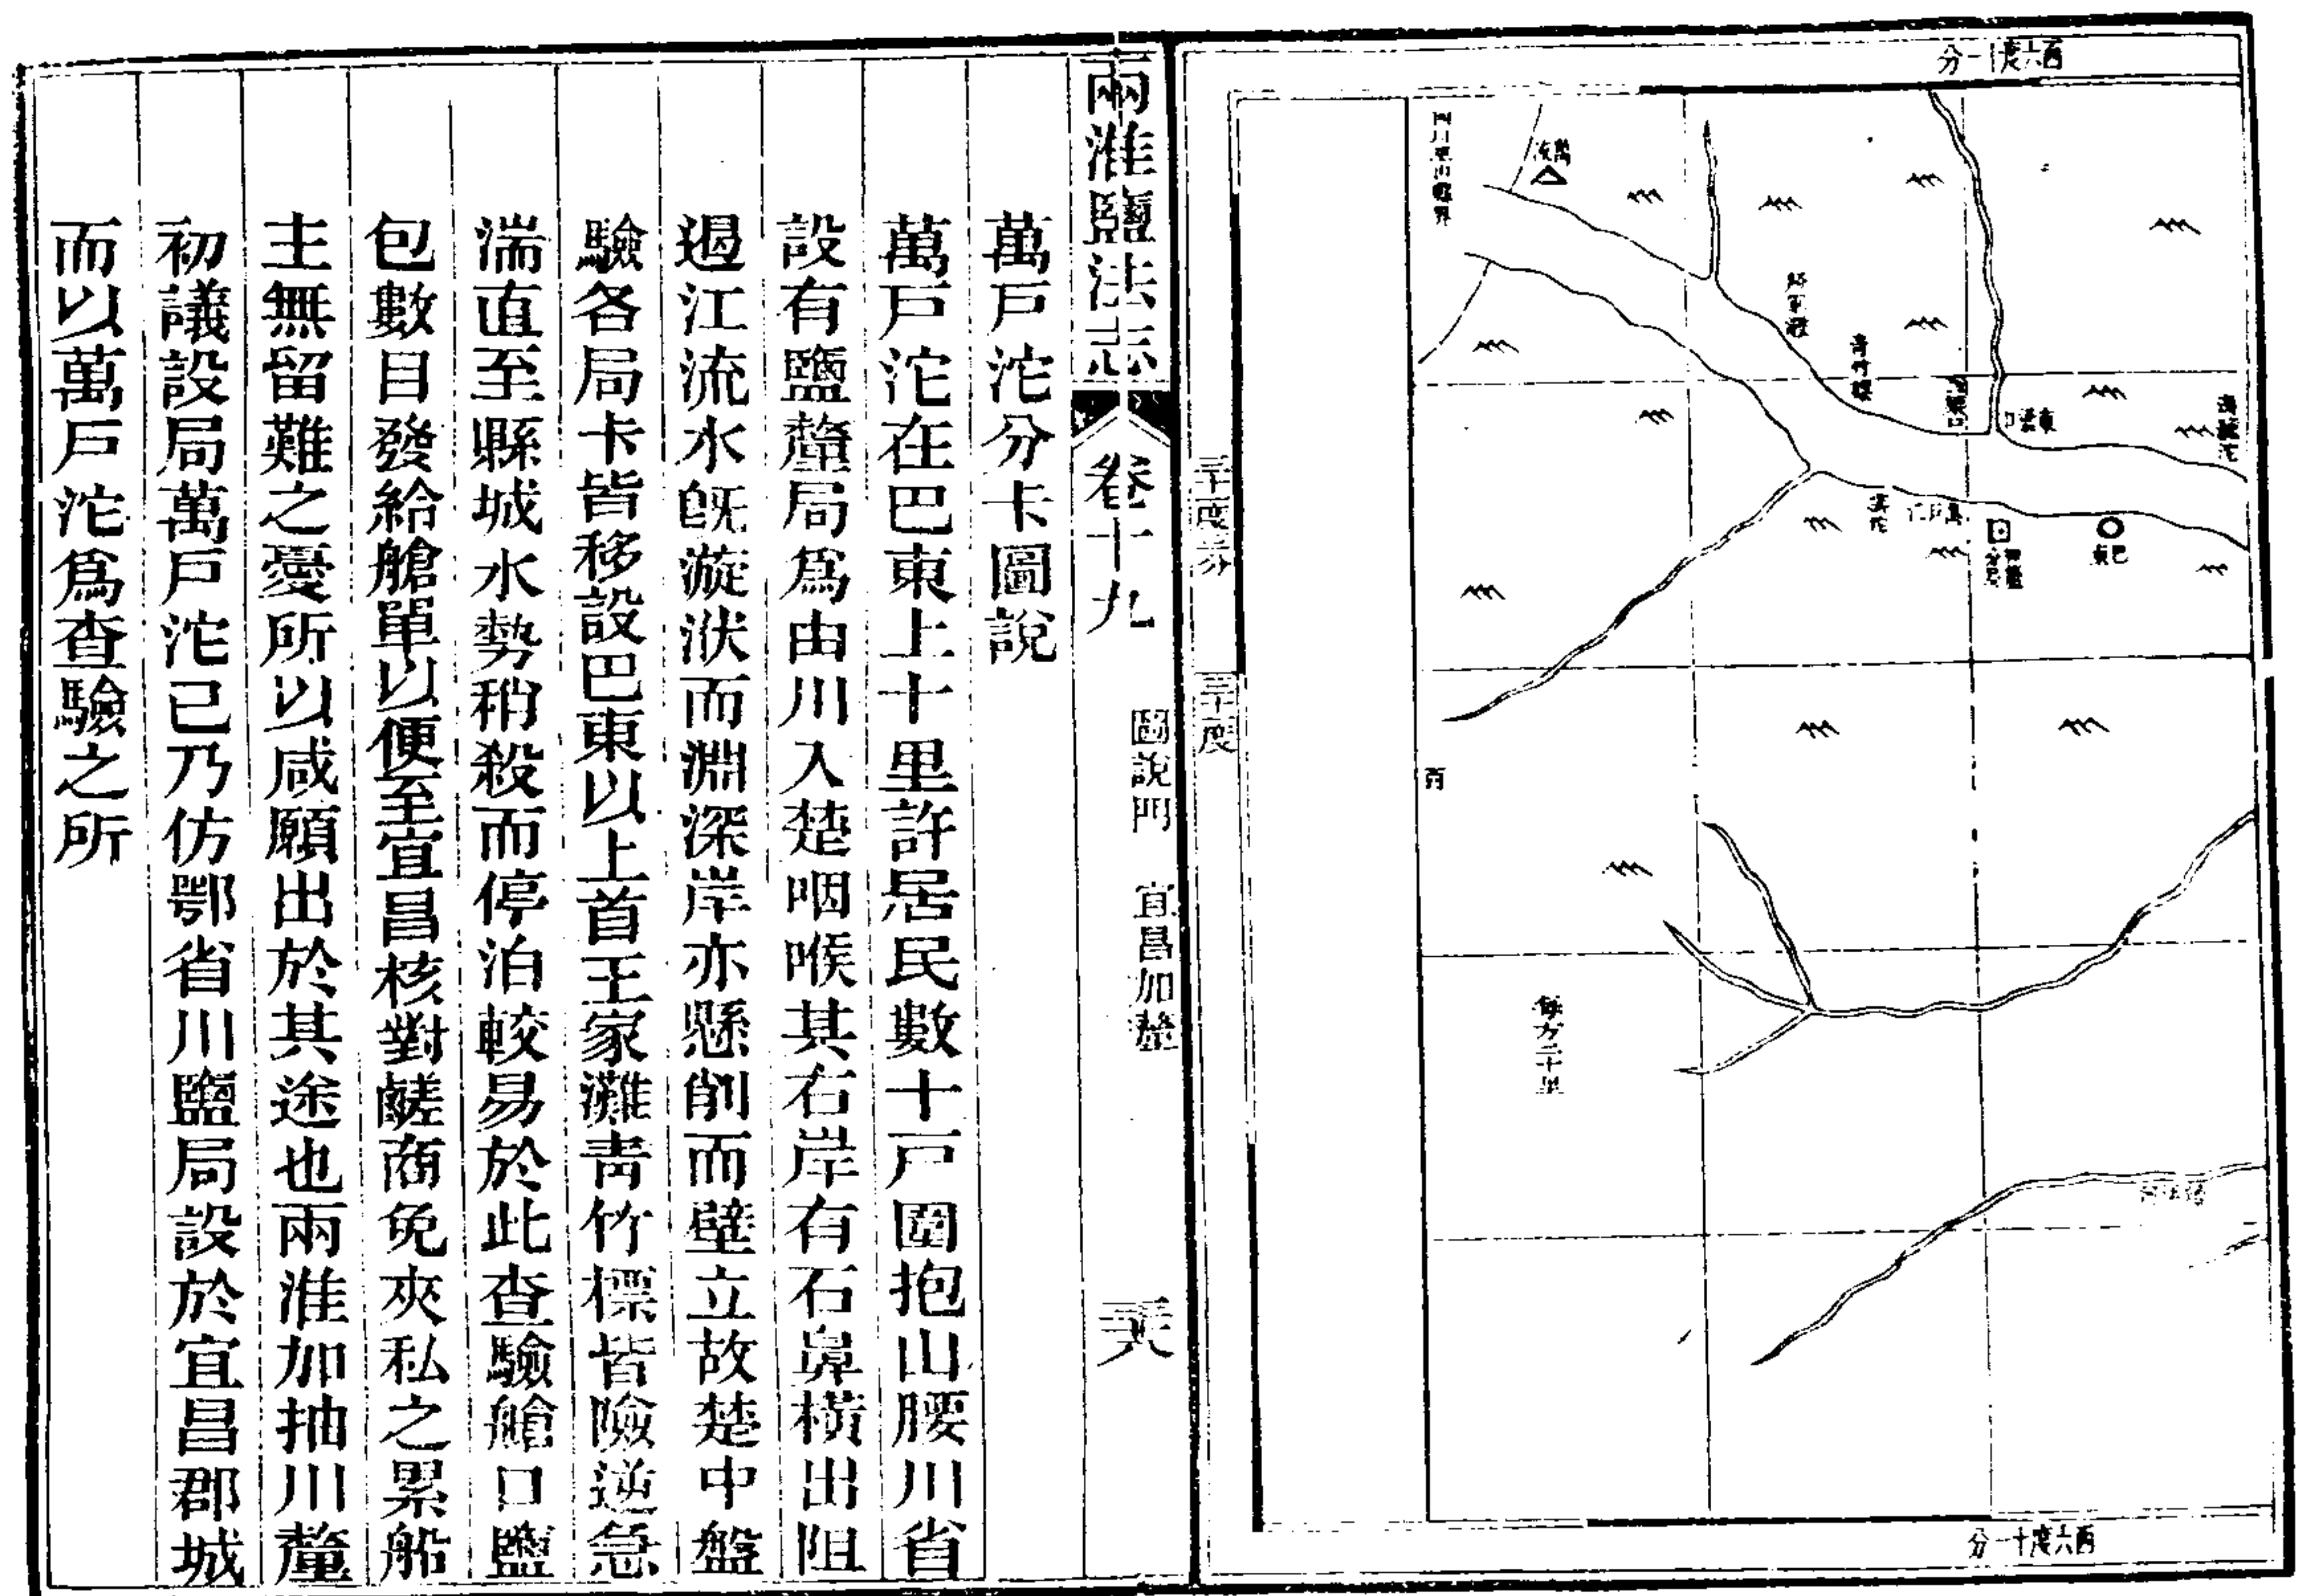 西六度十一分
三十度
萬戶沱
巴東
西
每方二十里
西六度十一分
兩淮鹽法志
卷十九
圖說門
宜昌加釐
萬戶沱分卡圖說
萬戶沱在巴東上十里許居民數十戸圍抱山腰川省
設有鹽釐局爲由川入楚咽喉其右岸有石鼻橫出阻
遏江流水旣漩洑而淵深岸亦懸削而壁立故楚中盤
驗各局卡皆移設巴東以上首王家灘靑竹標皆險逆急
湍直至縣城水勢稍殺而停泊較易於此查驗艙口鹽
包數目發給艙單以便至宜昌核對鹺商免夾私之累船
主無留難之憂所以咸願出於其途也兩淮加抽川釐
初議設局萬戶沱已乃仿鄂省川鹽局設於宜昌郡城
而以萬戶沱爲查驗之所